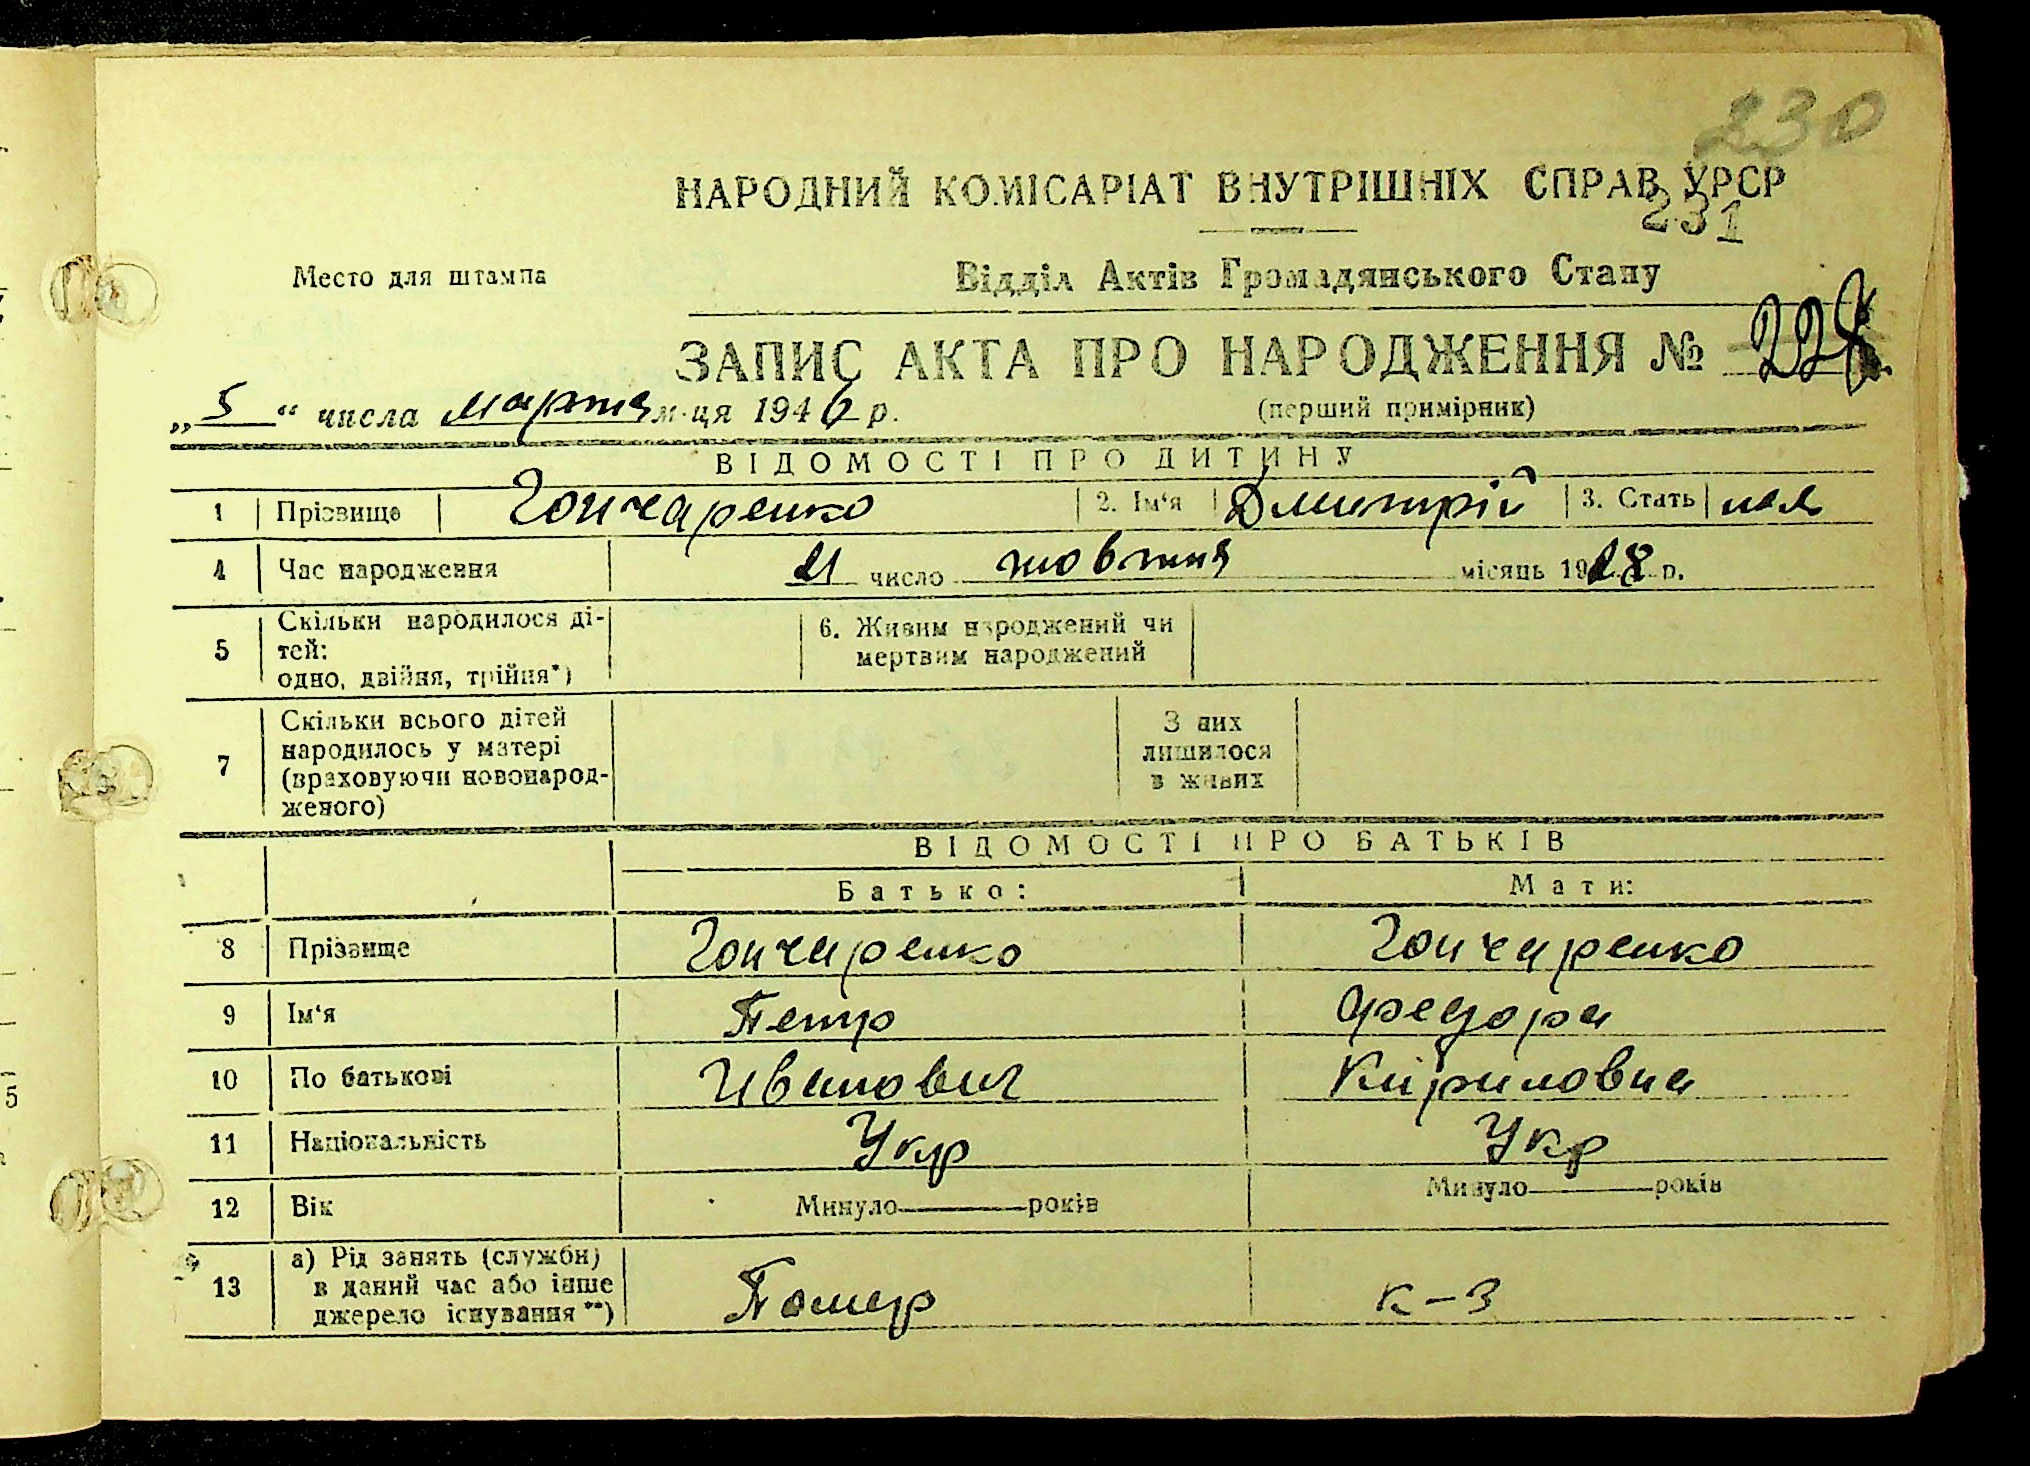 230
НАРОДНИЙ КОМІСАРІАТ ВНУТРІШНІХ СПРАВ УРСР
231
Место для штампа
Відділ Актів Громадянського Стану
ЗАПИС АКТА ПРО НАРОДЖЕННЯ № 228
„5“ числа марта м-ця 1946 р. (перший примірник)
ВІДОМОСТІ ПРО ДИТИНУ
1 Прізвище Гончаренко 2. Ім‘я Дмитрій 3. Стать
4 Час народження 21 число жовтня місяць 1928 р.
5 Скільки народилося ді-
тей:
одно, двійня, трійня*)
6. Живим народжений чи
мертвим народжений
7 Скільки всього дітей
народилось у матері
(враховуючи новонарод-
женого)
З них
лишилося
в живих
ВІДОМОСТІ ПРО БАТЬКІВ
Батько: Мати:
8 Прізвище Гончаренко Гончаренко
9 Ім‘я Петр Федора
10 По батькові Иванович Кириловна
11 Національність Укр Укр
12 Вік Минуло років Минуло років
13 а) Рід занять (служби)
в даний час або інше
джерело існування**)
Помер к-з
5